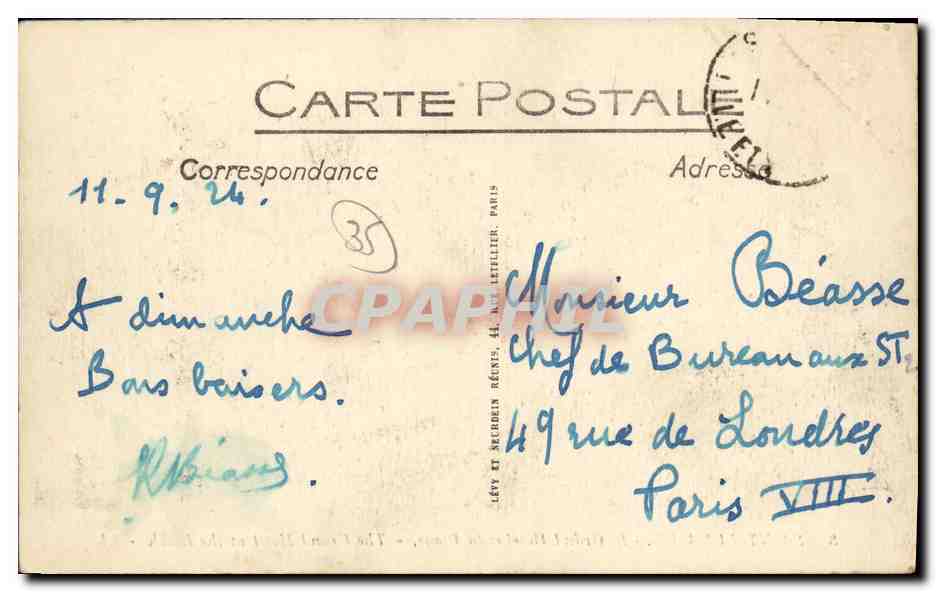 CARTE POSTALE
Correspondance
Adresse
11.9.24.
35
A dimanche
Bons baisers.
Béasse
LÉVY ET NEURDEIN RÉUNIS, 44, RUE LETELLIER, PARIS
Monsieur Béasse
Chef de Bureau aux ST
49 rue de Londres
Paris VIII.
CPAPHIL